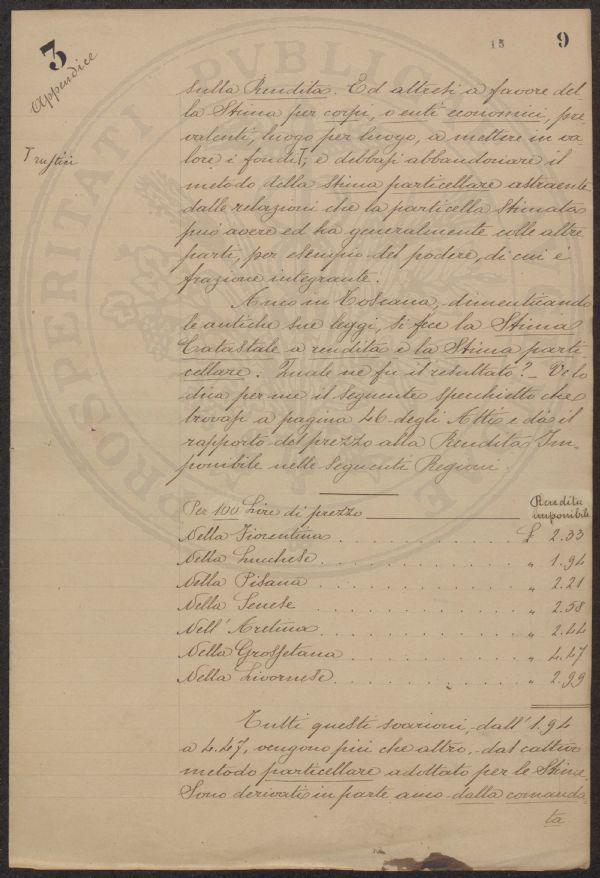 3
Appendice
15
9
PROSPERITATI PVBLICAE
sulla Rendita. Ed altresì a favore del-
la Stima per corpi, o enti economici, pre-
valenti, luogo per luogo, a mettere in va-
lore i fondi T; e debbasi abbandonare il
T rustici
metodo della Stima particellare astraente
dalle relazioni che la particella stimata
può avere ed ha generalmente colle altre
parti, per esempio del podere, di cui è
frazione integrante.
Anco in Toscana, dimenticando
le antiche sue leggi, si fece la Stima
Catastale a rendita e la Stima parti
cellare. Quale ne fu il resultato? _ Ve lo
dica per me il seguente specchietto che
trovasi a pagina 46 degli Atti e dà il
rapporto del prezzo alla Rendita Im-
ponibile nelle seguenti Regioni.
Per 100 Lire di prezzo Rendita
imponibile
Nella Fiorentina £ 2.33
Nella Lucchese „ 1.94
Nella Pisana „ 2.21
Nella Senese „ 2.58
Nell' Aretina „ 2.44
Nella Grossetana „ 4.47
Nella Livornese „ 2.99
Tutti questi svarioni, dall' 1.94
a 4.47, vengono più che altro, dal cattivo
metodo particellare adottato per le Stime.
Sono derivati in parte anco dalla comanda-
ta